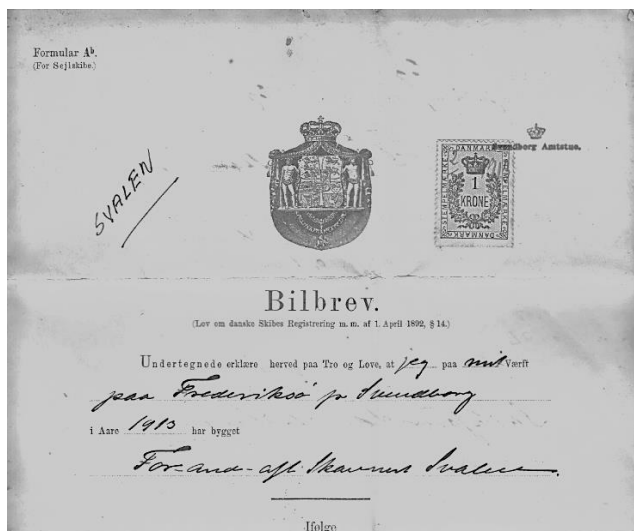 Formular Aᵇ.
(For Sejlskibe.)
Svendborg Amtstue.
DANMARK
STEMPELMÆRKE
1
KRONE
DANMARK
SVALEN
Bilbrev.
(Lov om danske Skibes Registrering m. m. af 1. April 1892, § 14.)
Undertegnede erklære herved paa Tro og Love, at jeg paa mit Værft
paa Frederiksö pr Svendborg
i Aare 1913 har bygget
For-and-aft Skonnert Svalen.
Ifølge